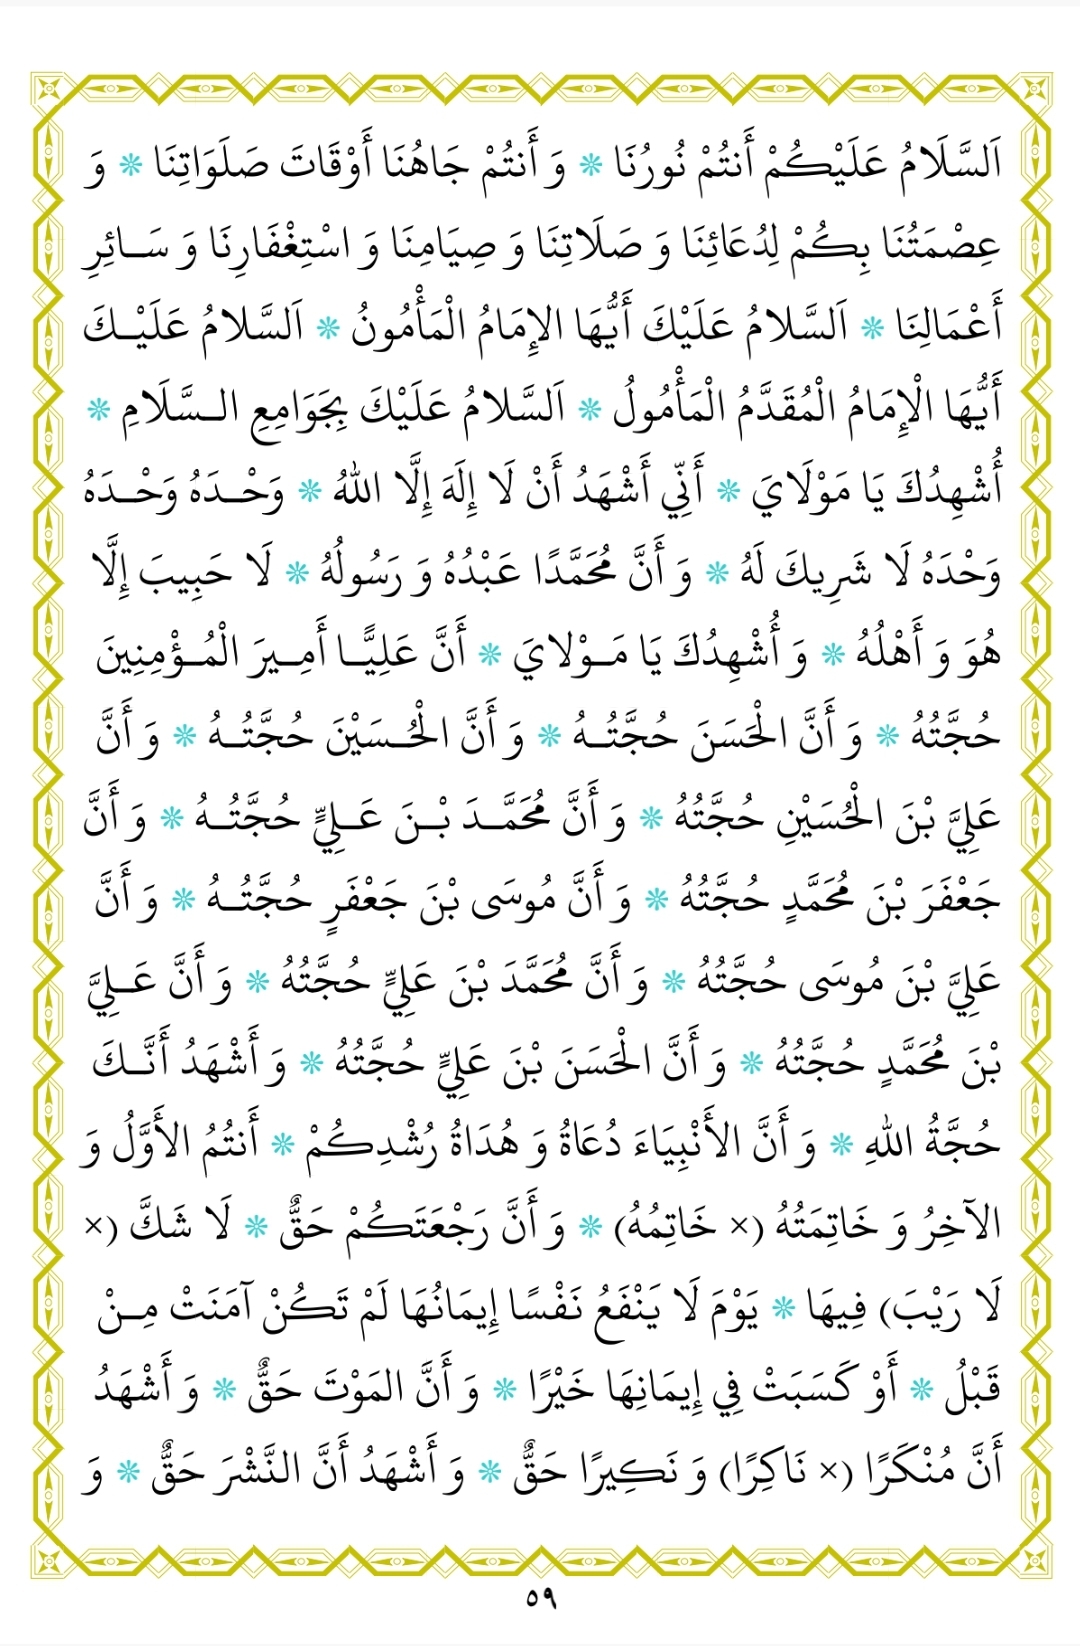 اَلسَّلَامُ عَلَيْكُمْ أَنتُمْ نُورُنَا * وَ أَنتُمْ جَاهُنَا أَوْقَاتَ صَلَوَاتِنَا * وَ
عِصْمَتُنَا بِكُمْ لِدُعَائِنَا وَ صَلَاتِنَا وَ صِيَامِنَا وَ اسْتِغْفَارِنَا وَ سَـائِرِ
أَعْمَالِنَا * اَلسَّلَامُ عَلَيْكَ أَيُّهَا الإِمَامُ الْمَأْمُونُ * اَلسَّلَامُ عَلَيْـكَ
أَيُّهَا الْإِمَامُ الْمُقَدَّمُ الْمَأْمُولُ * اَلسَّلَامُ عَلَيْكَ بِجَوَامِعِ الـسَّلَامِ *
أُشْهِدُكَ يَا مَوْلَايَ * أَنِّي أَشْهَدُ أَنْ لَا إِلَهَ إِلَّا اللهُ * وَحْـدَهُ وَحْـدَهُ
وَحْدَهُ لَا شَرِيكَ لَهُ * وَ أَنَّ مُحَمَّدًا عَبْدُهُ وَ رَسُولُهُ * لَا حَبِيبَ إِلَّا
هُوَ وَ أَهْلُهُ * وَ أُشْهِدُكَ يَا مَـوْلايَ * أَنَّ عَلِيًّـا أَمِـيرَ الْمُـؤْمِنِينَ
حُجَّتُهُ * وَ أَنَّ الْحَسَنَ حُجَّتُـهُ * وَ أَنَّ الْحُـسَيْنَ حُجَّتُـهُ * وَ أَنَّ
عَلِيَّ بْنَ الْحُسَيْنِ حُجَّتُهُ * وَ أَنَّ مُحَمَّـدَ بْـنَ عَـلِيٍّ حُجَّتُـهُ * وَ أَنَّ
جَعْفَرَ بْنَ مُحَمَّدٍ حُجَّتُهُ * وَ أَنَّ مُوسَى بْنَ جَعْفَرٍ حُجَّتُـهُ * وَ أَنَّ
عَلِيَّ بْنَ مُوسَى حُجَّتُهُ * وَ أَنَّ مُحَمَّدَ بْنَ عَلِيٍّ حُجَّتُهُ * وَ أَنَّ عَـلِيَّ
بْنَ مُحَمَّدٍ حُجَّتُهُ * وَ أَنَّ الْحَسَنَ بْنَ عَلِيٍّ حُجَّتُهُ * وَ أَشْهَدُ أَنَّـكَ
حُجَّةُ اللهِ * وَ أَنَّ الأَنْبِيَاءَ دُعَاةُ وَ هُدَاةُ رُشْدِكُمْ * أَنتُمُ الأَوَّلُ وَ
الآخِرُ وَ خَاتِمَتُهُ (× خَاتِمُهُ) * وَ أَنَّ رَجْعَتَكُمْ حَقٌّ * لَا شَكَّ (×
لَا رَيْبَ) فِيهَا * يَوْمَ لَا يَنْفَعُ نَفْسًا إِيمَانُهَا لَمْ تَكُنْ آمَنَتْ مِـنْ
قَبْلُ * أَوْ كَسَبَتْ فِي إِيمَانِهَا خَيْرًا * وَ أَنَّ المَوْتَ حَقٌّ * وَ أَشْهَدُ
أَنَّ مُنْكَرًا (× نَاكِرًا) وَ نَكِيرًا حَقٌّ * وَ أَشْهَدُ أَنَّ النَّشْرَ حَقٌّ * وَ
٥٩